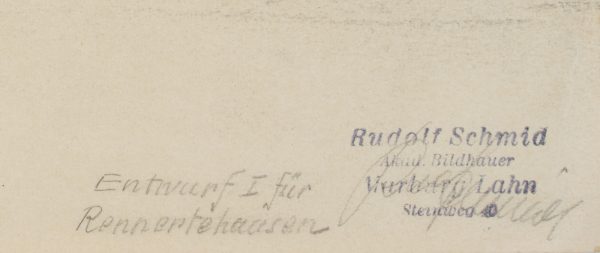 Rudolf Schmid
Akad. Bildhauer
Marburg Lahn
Steinweg
Entwurf I für
Rennertehausen